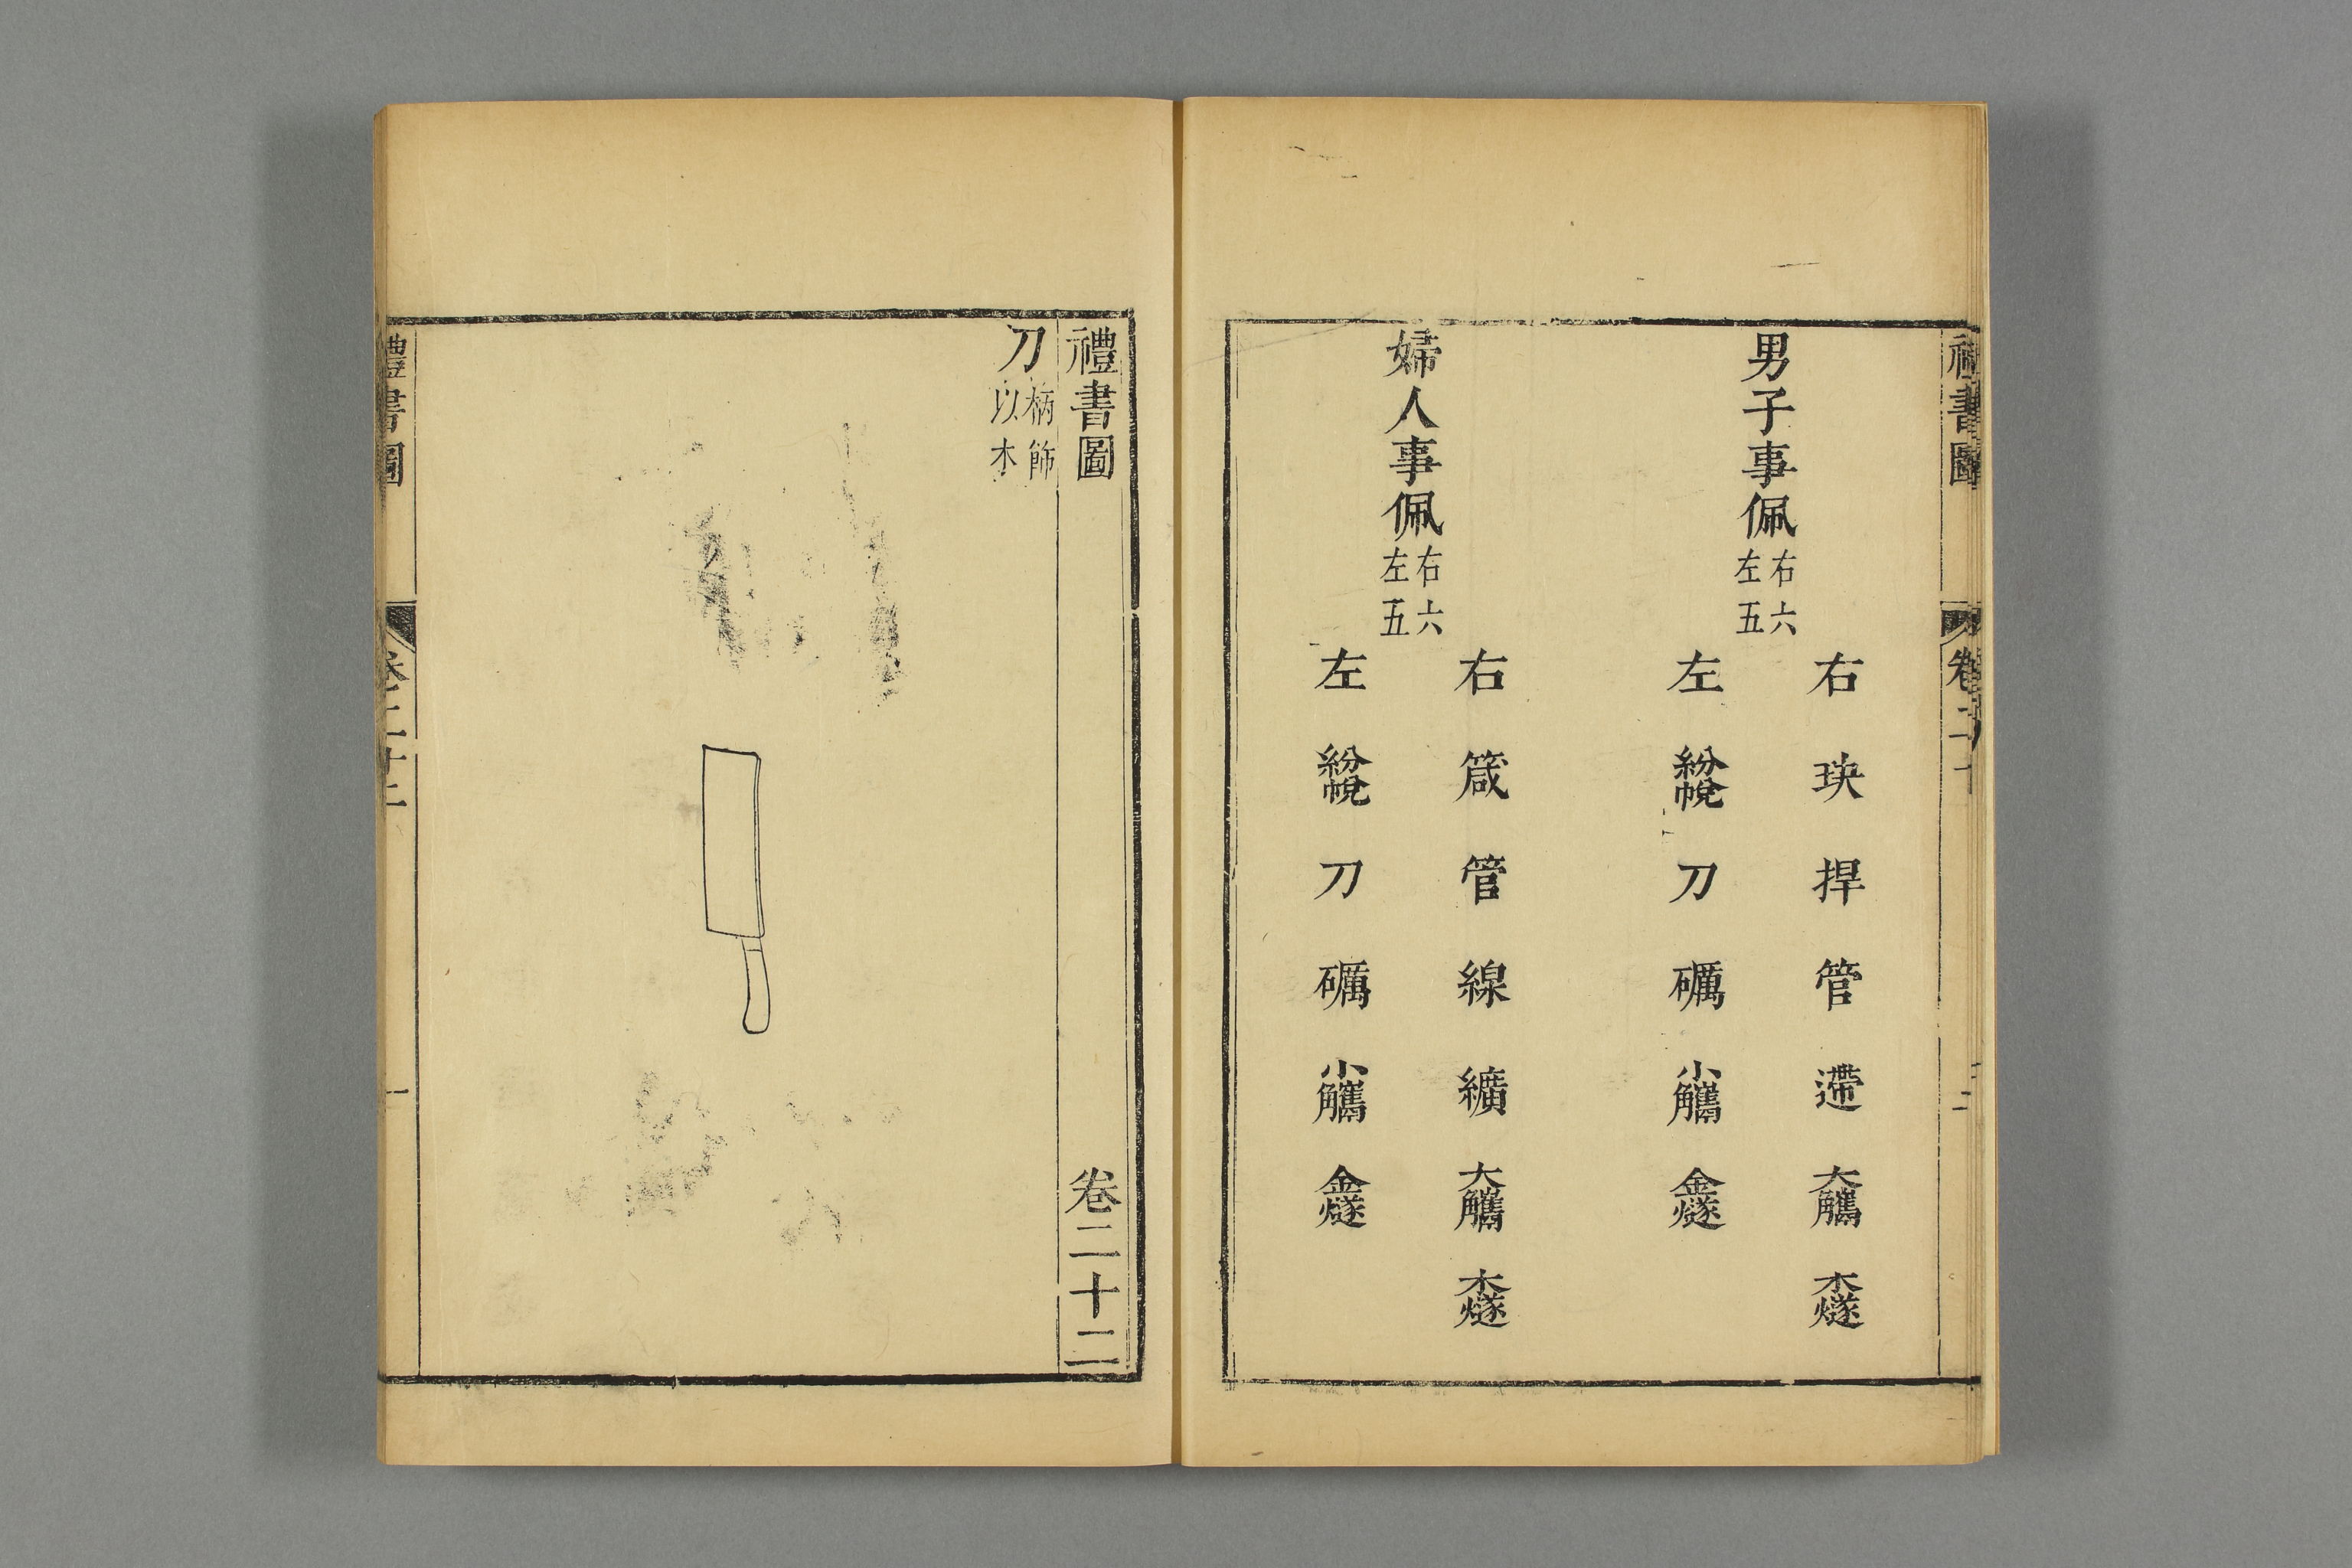 禮書圖
卷二十
二
男子事佩
右六
左五
右 玦 捍 管 遰 大觿 木燧
左 紛帨 刀 礪 小觿 金燧
婦人事佩
右六
左五
右 箴 管 線 纊 大觿 木燧
左 紛帨 刀 礪 小觿 金燧
禮書圖 卷二十二
刀
柄飾
以木
禮書圖
卷二十二
一